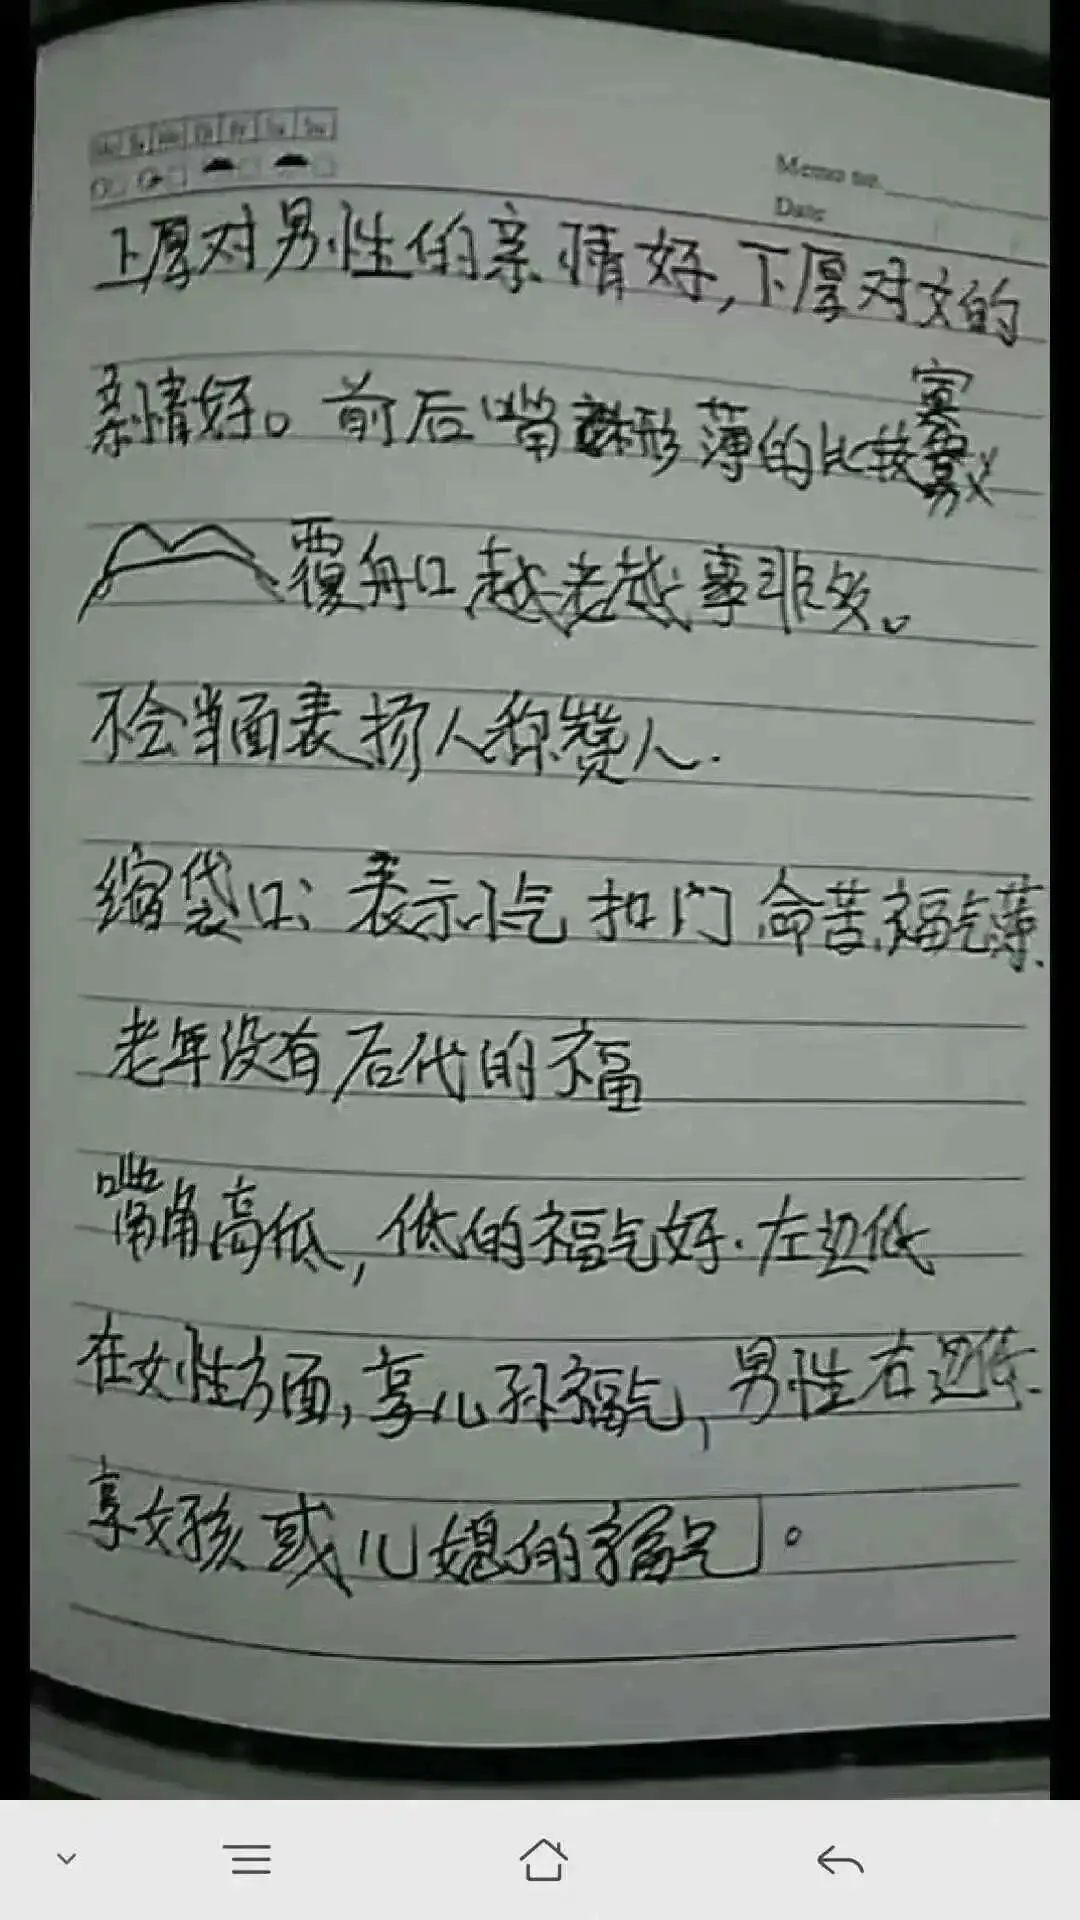 Memo no.
Date
上厚对男性的亲情好,下厚对女的
亲情好。前后嘴 形薄的比较寡
覆舟口越老越事非多。
不会当面表扬人称赞人.
缩袋口: 表示小气 扣门 命苦.福气薄.
老年没有后代的福
嘴角高低,低的福气好.左边低
在女性方面,享儿孙福气,男性右边低.
享女孩或儿媳的福气。